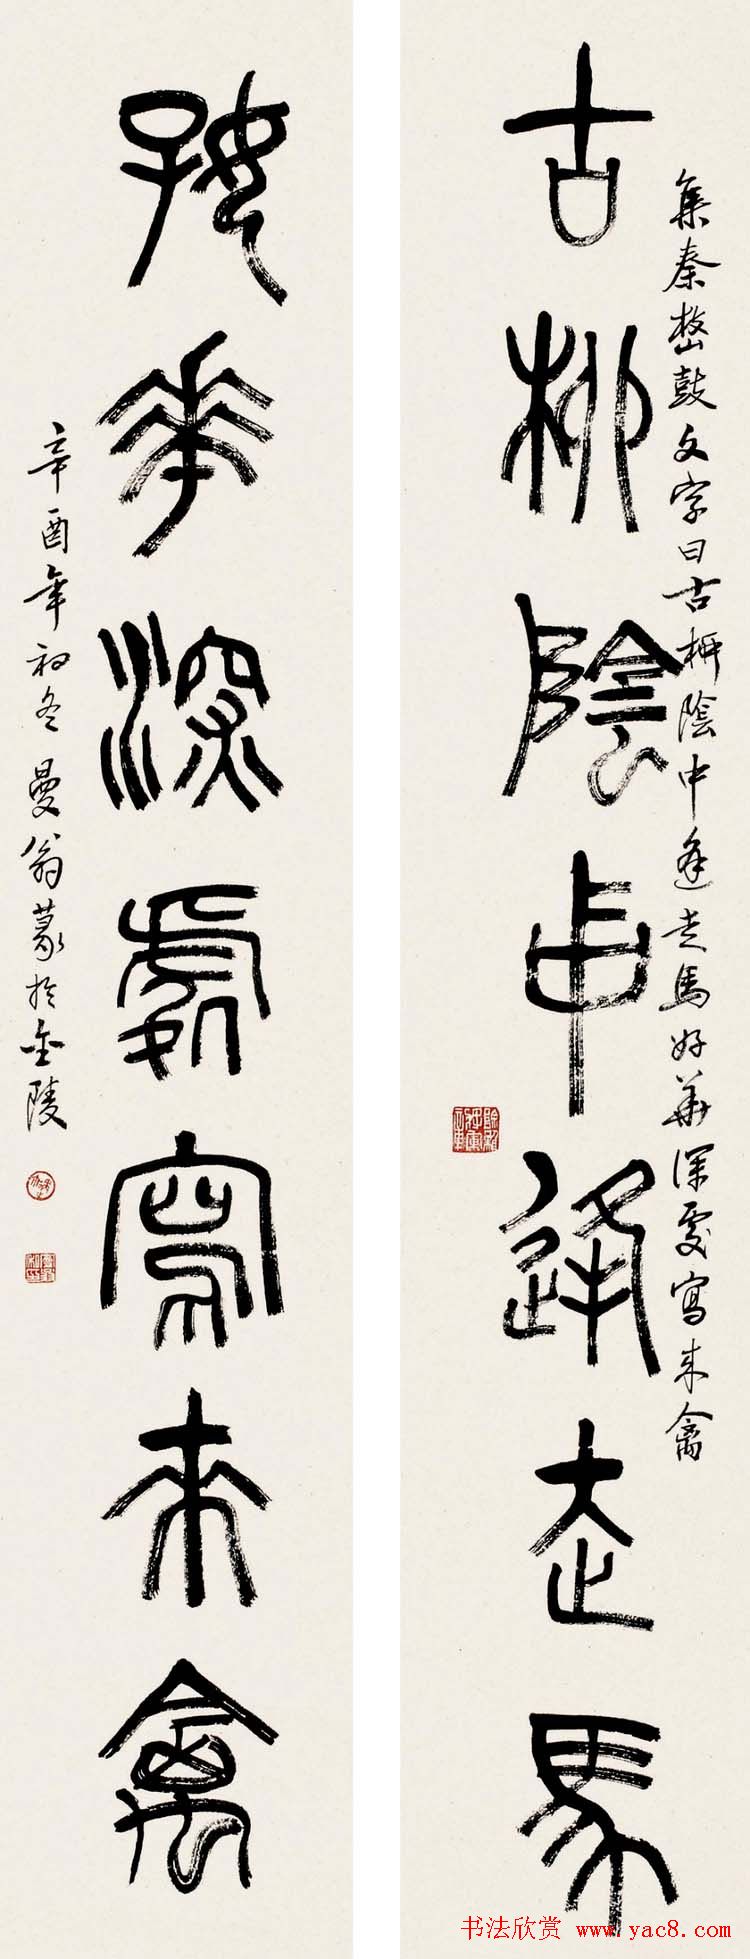 集秦鼓文字曰古栁陰中逢走馬好華深處寫來禽
古栁陰中逢走馬
好華深處寫來禽
辛酉年初冬曼翁篆於金陵
书法欣赏 www.yac8.com